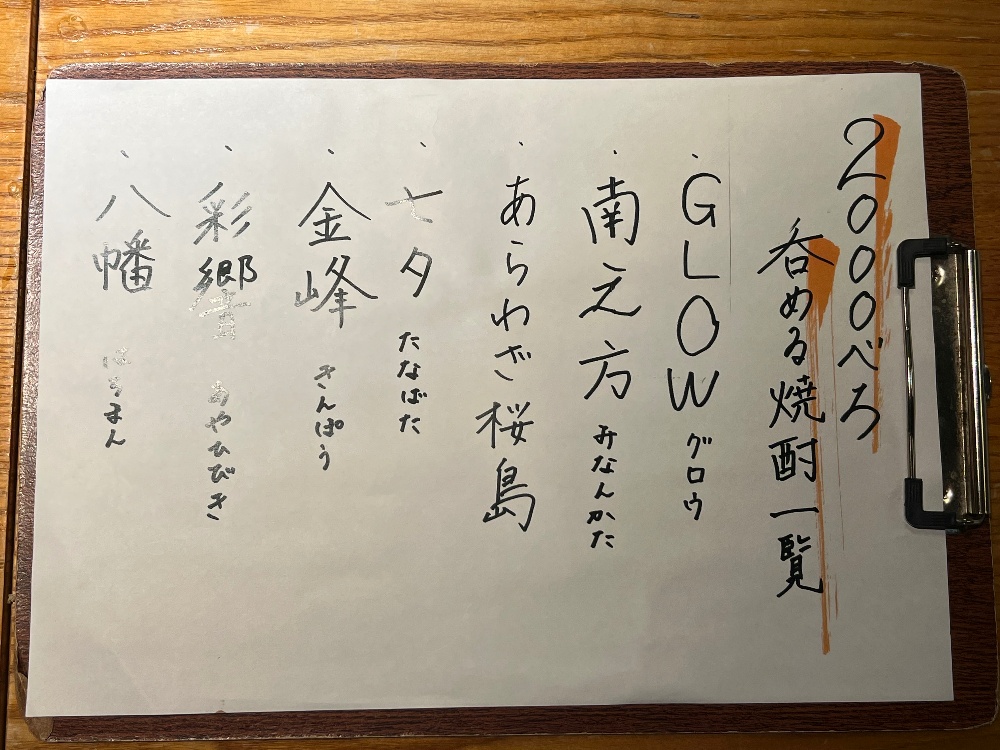 2000べろ
呑める焼酎一覧
・GLOW グロウ
・南之方 みなんかた
・あらわざ桜島
・七夕 たなばた
・金峰 きんぽう
・彩響 あやひびき
・八幡 はちまん